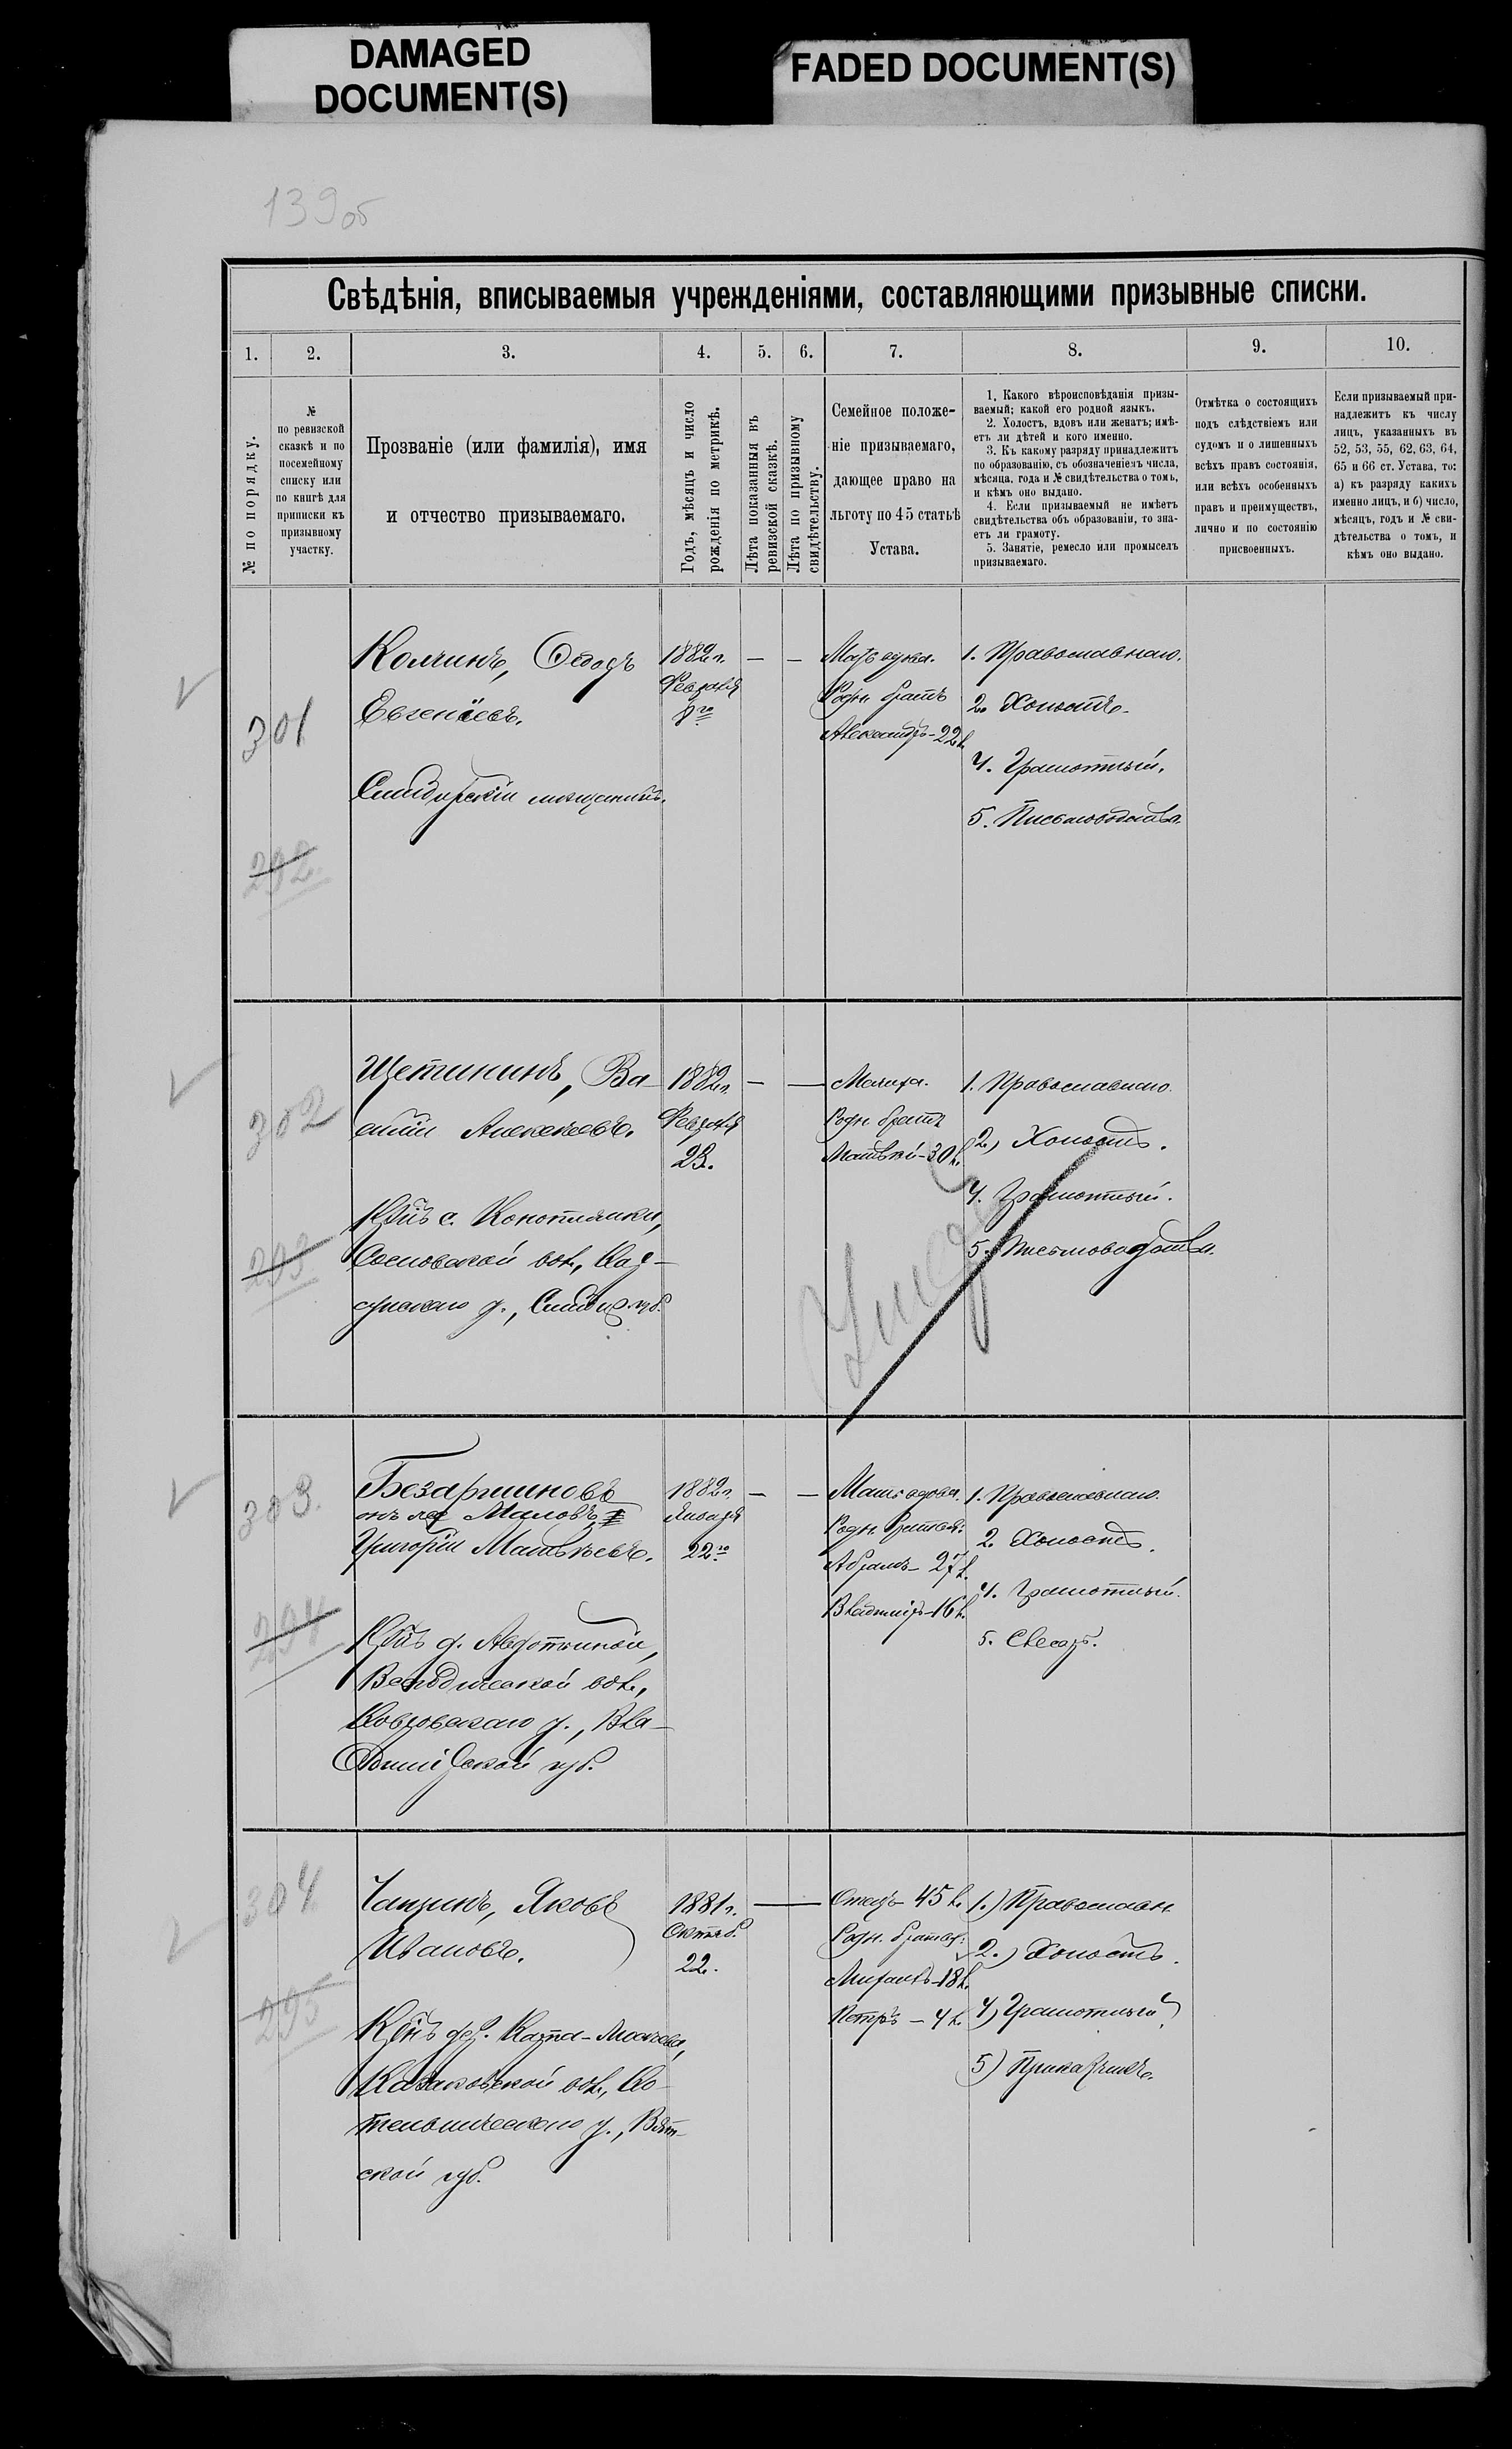 DAMAGED
DOCUMENT(S)
FADED DOCUMENT(S)
139об
Свѣдѣнія, вписываемыя учрежденіями, составляющими призывные списки.
1.
2.
3.
4.
5.
6.
7.
8.
9.
10.
№ по порядку.
№
по ревизской
сказкѣ и по
посемейному
списку или
по книгѣ для
приписки къ
призывному
участку.
Прозваніе (или фамилія), имя
и отчество призываемаго.
Годъ, мѣсяцъ и число
рожденія по метрикѣ.
Лѣта показанныя въ
ревизской сказкѣ.
Лѣта по призывному
свидѣтельству.
Семейное положе-
ніе призываемаго,
дающее право на
льготу по 45 статьѣ
Устава.
1. Какого вѣроисповѣданія призы-
ваемый; какой его родной языкъ.
2. Холостъ, вдовъ или женатъ; имѣ-
етъ ли дѣтей и кого именно.
3. Къ какому разряду принадлежитъ
по образованію, съ обозначеніемъ числа,
мѣсяца, года и № свидѣтельства о томъ,
и кѣмъ оно выдано.
4. Если призываемый не имѣетъ
свидѣтельства объ образованіи, то зна-
етъ ли грамоту.
5. Занятіе, ремесло или промыселъ
призываемаго.
Отмѣтка о состоящихъ
подъ слѣдствіемъ или
судомъ и о лишенныхъ
всѣхъ правъ состоянія,
или всѣхъ особенныхъ
правъ и преимуществъ,
лично и по состоянію
присвоенныхъ.
Если призываемый при-
надлежитъ къ числу
лицъ, указанныхъ въ
52, 53, 55, 62, 63, 64,
65 и 66 ст. Устава, то:
а) къ разряду какихъ
именно лицъ, и б) число,
мѣсяцъ, годъ и № сви-
дѣтельства о томъ, и
кѣмъ оно выдано.
301
292.
Колчинъ, Ѳедоръ
Евгеніевъ.
Симбирскій мѣщанинъ.
1882 г.
Февраля
8го
—
—
Мать вдова.
Родн. братъ
Александръ - 22 л.
1. Православнаго.
2. Холостъ.
4. Грамотный.
5. Письмоводство.
302
293
Щетининъ, Ва-
силій Алексѣевъ.
Кр-нъ с. Коноплянки,
Сосновской вол., Кар-
сунскаго у., Симбир. губ.
1882 г.
Февраля
23.
—
—
Мачиха.
Родн. братъ
Матвѣй - 30 л.
1. Православнаго.
2) Холостъ.
4. Грамотный.
5. Письмоводство.
303.
294
Безаршиновъ
онъ же Маловъ
Григорій Матвѣевъ.
Кр-нъ д. Авдотьиной,
Ковровскаго у., Вла-
димірской губ.
1882 г.
Января
22го
—
—
Мать вдова.
Родн. братья:
Абрамъ - 27 л.
Владиміръ - 16 л.
1. Православнаго.
2. Холостъ.
4. Грамотный.
5. Слесарь.
304
295
Чапринъ, Яковъ
Ивановъ.
Казаковской вол., Ко-
тельническаго у., Вят-
ской губ.
1881 г.
Октяб.
22.
—
Отецъ 45 л.
Родн. братья:
Михаилъ - 18 л.
Петръ - 4 л.
1.) Православн.
2.) Холостъ.
4) Грамотный.
5) Приказчикъ.